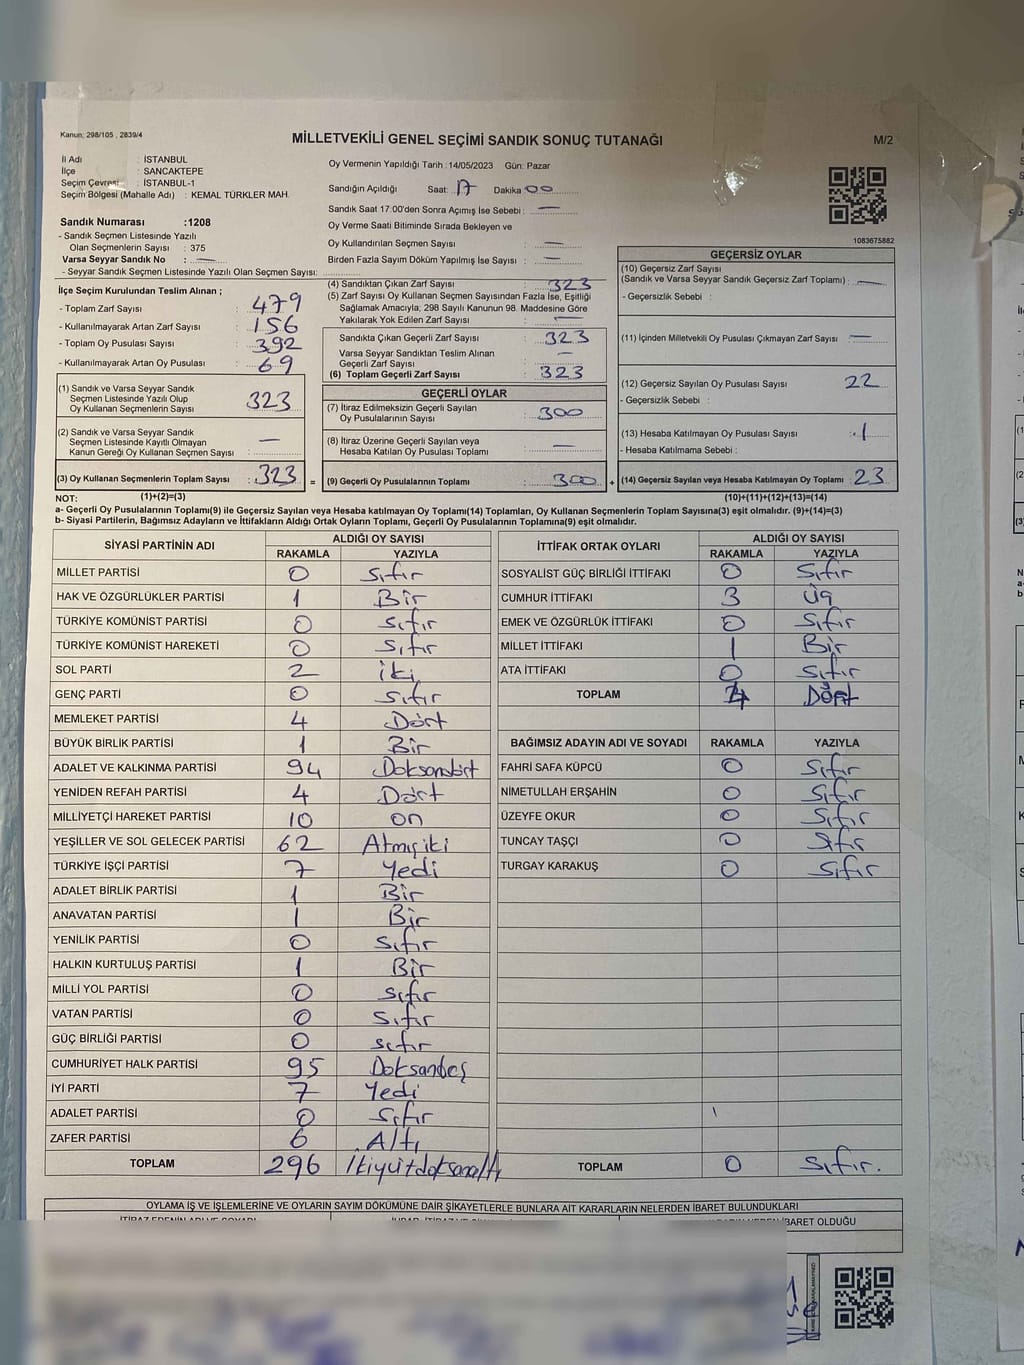 Kanun: 298/105 , 2839/4
MİLLETVEKİLİ GENEL SEÇİMİ SANDIK SONUÇ TUTANAĞI
M/2
İl Adı : İSTANBUL
İlçe : SANCAKTEPE
Seçim Çevresi : İSTANBUL-1
Seçim Bölgesi (Mahalle Adı) : KEMAL TÜRKLER MAH.
Sandık Numarası :1208
- Sandık Seçmen Listesinde Yazılı
Olan Seçmenlerin Sayısı : 375
Varsa Seyyar Sandık No : —
- Seyyar Sandık Seçmen Listesinde Yazılı Olan Seçmen Sayısı:
Oy Vermenin Yapıldığı Tarih :14/05/2023 Gün: Pazar
Sandığın Açıldığı Saat: 17 Dakika 00
Sandık Saat 17:00'den Sonra Açımış İse Sebebi : —
Oy Verme Saati Bitiminde Sırada Bekleyen ve
Oy Kullandırılan Seçmen Sayısı : —
Birden Fazla Sayım Döküm Yapılmış İse Sayısı : —
1083675882
İlçe Seçim Kurulundan Teslim Alınan ;
- Toplam Zarf Sayısı : 479
- Kullanılmayarak Artan Zarf Sayısı : 156
- Toplam Oy Pusulası Sayısı : 392
- Kullanılmayarak Artan Oy Pusulası : 69
(1) Sandık ve Varsa Seyyar Sandık
Seçmen Listesinde Yazılı Olup
Oy Kullanan Seçmenlerin Sayısı : 323
(2) Sandık ve Varsa Seyyar Sandık
Seçmen Listesinde Kayıtlı Olmayan
Kanun Gereği Oy Kullanan Seçmen Sayısı : —
(3) Oy Kullanan Seçmenlerin Toplam Sayısı : 323
(4) Sandıktan Çıkan Zarf Sayısı : 323
(5) Zarf Sayısı Oy Kullanan Seçmen Sayısından Fazla İse, Eşitliği
Sağlamak Amacıyla; 298 Sayılı Kanunun 98. Maddesine Göre
Yakılarak Yok Edilen Zarf Sayısı : —
Sandıkta Çıkan Geçerli Zarf Sayısı : 323
Varsa Seyyar Sandıktan Teslim Alınan
Geçerli Zarf Sayısı : —
(6) Toplam Geçerli Zarf Sayısı : 323
GEÇERLİ OYLAR
(7) İtiraz Edilmeksizin Geçerli Sayılan
Oy Pusulalarının Sayısı : 300
(8) İtiraz Üzerine Geçerli Sayılan veya
Hesaba Katılan Oy Pusulası Toplamı : —
= (9) Geçerli Oy Pusulalarının Toplamı : 300 +
GEÇERSİZ OYLAR
(10) Geçersiz Zarf Sayısı
(Sandık ve Varsa Seyyar Sandık Geçersiz Zarf Toplamı) : —
- Geçersizlik Sebebi :
(11) İçinden Milletvekili Oy Pusulası Çıkmayan Zarf Sayısı : —
(12) Geçersiz Sayılan Oy Pusulası Sayısı : 22
- Geçersizlik Sebebi :
(13) Hesaba Katılmayan Oy Pusulası Sayısı : 1
- Hesaba Katılmama Sebebi :
(14) Geçersiz Sayılan veya Hesaba Katılmayan Oy Toplamı : 23
NOT: (1)+(2)=(3) (10)+(11)+(12)+(13)=(14)
a- Geçerli Oy Pusulalarının Toplamı(9) ile Geçersiz Sayılan veya Hesaba katılmayan Oy Toplamı(14) Toplamları, Oy Kullanan Seçmenlerin Toplam Sayısına(3) eşit olmalıdır. (9)+(14)=(3)
b- Siyasi Partilerin, Bağımsız Adayların ve İttifakların Aldığı Ortak Oyların Toplamı, Geçerli Oy Pusulalarının Toplamına(9) eşit olmalıdır.
SİYASİ PARTİNİN ADI ALDIĞI OY SAYISI
RAKAMLA YAZIYLA
MİLLET PARTİSİ 0 Sıfır
HAK VE ÖZGÜRLÜKLER PARTİSİ 1 Bir
TÜRKİYE KOMÜNİST PARTİSİ 0 Sıfır
TÜRKİYE KOMÜNİST HAREKETİ 0 Sıfır
SOL PARTİ 2 iki
GENÇ PARTİ 0 Sıfır
MEMLEKET PARTİSİ 4 Dört
BÜYÜK BİRLİK PARTİSİ 1 Bir
ADALET VE KALKINMA PARTİSİ 94 Doksandört
YENİDEN REFAH PARTİSİ 4 Dört
MİLLİYETÇİ HAREKET PARTİSİ 10 on
YEŞİLLER VE SOL GELECEK PARTİSİ 62 Atmışiki
TÜRKİYE İŞÇİ PARTİSİ 7 Yedi
ADALET BİRLİK PARTİSİ 1 Bir
ANAVATAN PARTİSİ 1 Bir
YENİLİK PARTİSİ 0 Sıfır
HALKIN KURTULUŞ PARTİSİ 1 Bir
MİLLİ YOL PARTİSİ 0 Sıfır
VATAN PARTİSİ 0 Sıfır
GÜÇ BİRLİĞİ PARTİSİ 0 Sıfır
CUMHURİYET HALK PARTİSİ 95 Doksanbeş
İYİ PARTİ 7 Yedi
ADALET PARTİSİ 0 Sıfır
ZAFER PARTİSİ 6 Altı
TOPLAM 296 İkiyüzdoksanaltı
İTTİFAK ORTAK OYLARI ALDIĞI OY SAYISI
RAKAMLA YAZIYLA
SOSYALİST GÜÇ BİRLİĞİ İTTİFAKI 0 Sıfır
CUMHUR İTTİFAKI 3 üç
EMEK VE ÖZGÜRLÜK İTTİFAKI 0 Sıfır
MİLLET İTTİFAKI 1 Bir
ATA İTTİFAKI 0 Sıfır
TOPLAM 4 Dört
BAĞIMSIZ ADAYIN ADI VE SOYADI RAKAMLA YAZIYLA
FAHRİ SAFA KÜPCÜ 0 Sıfır
NİMETULLAH ERŞAHİN 0 Sıfır
ÜZEYFE OKUR 0 Sıfır
TUNCAY TAŞÇI 0 Sıfır
TURGAY KARAKUŞ 0 Sıfır
TOPLAM 0 Sıfır.
OYLAMA İŞ VE İŞLEMLERİNE VE OYLARIN SAYIM DÖKÜMÜNE DAİR ŞİKAYETLERLE BUNLARA AİT KARARLARIN NELERDEN İBARET BULUNDUKLARI
İBARET OLDUĞU